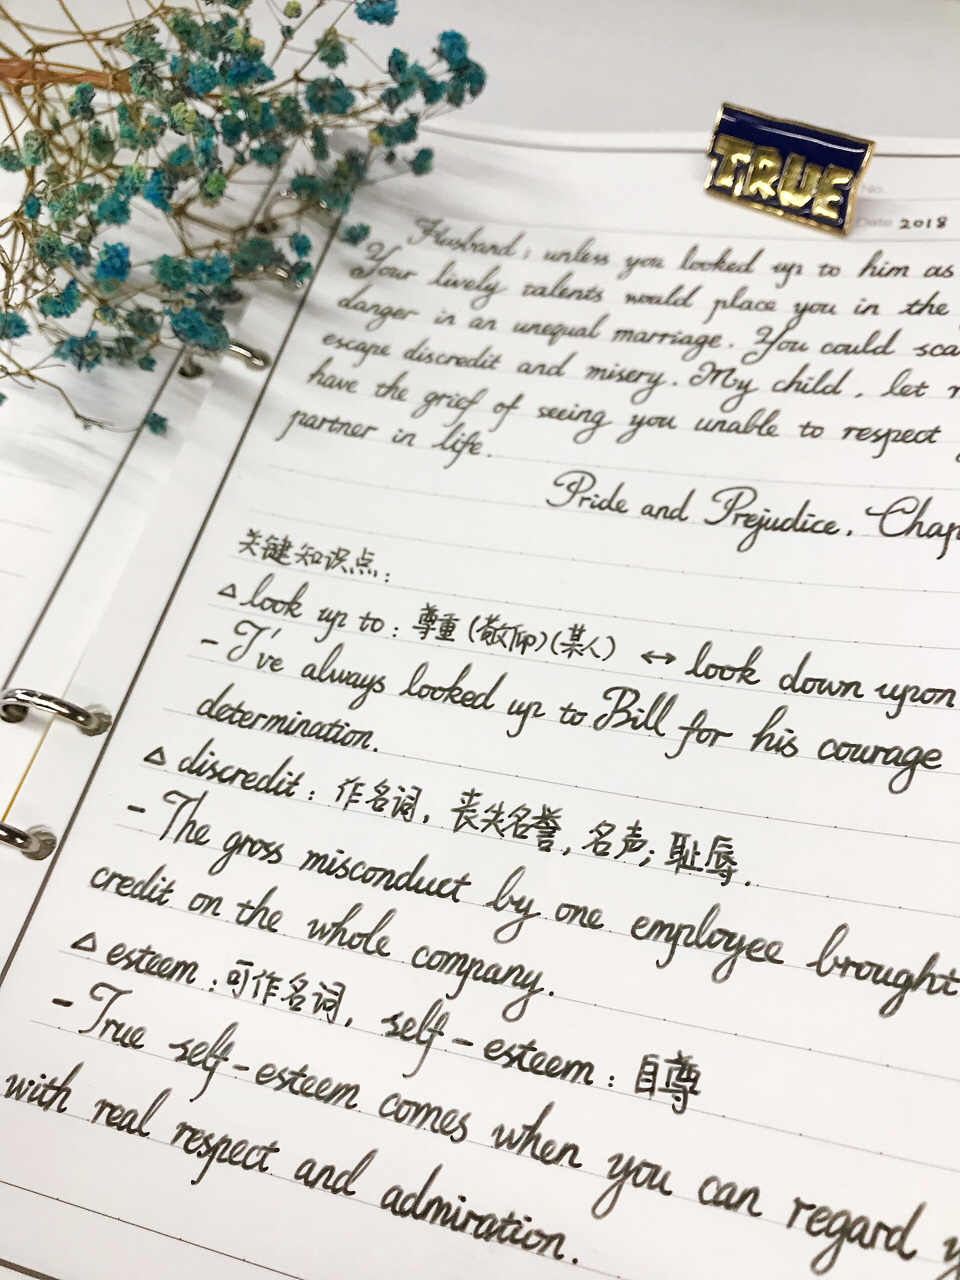 TRUE
No.
Date 2018
Husband; unless you looked up to him as
Your lively talents would place you in the
danger in an unequal marriage. You could
escape discredit and misery. My child, let
have the grief of seeing you unable to respect
partner in life.
Pride and Prejudice. Chap
关键知识点:
△ look up to: 尊重(敬仰)(某人) ↔ look down upon
- I've always looked up to Bill for his courage
determination.
△ discredit: 作名词, 丧失名誉, 名声; 耻辱.
- The gross misconduct by one employee brought
credit on the whole company.
△ esteem: 可作名词, self-esteem: 自尊
- True self-esteem comes when you can regard
with real respect and admiration.